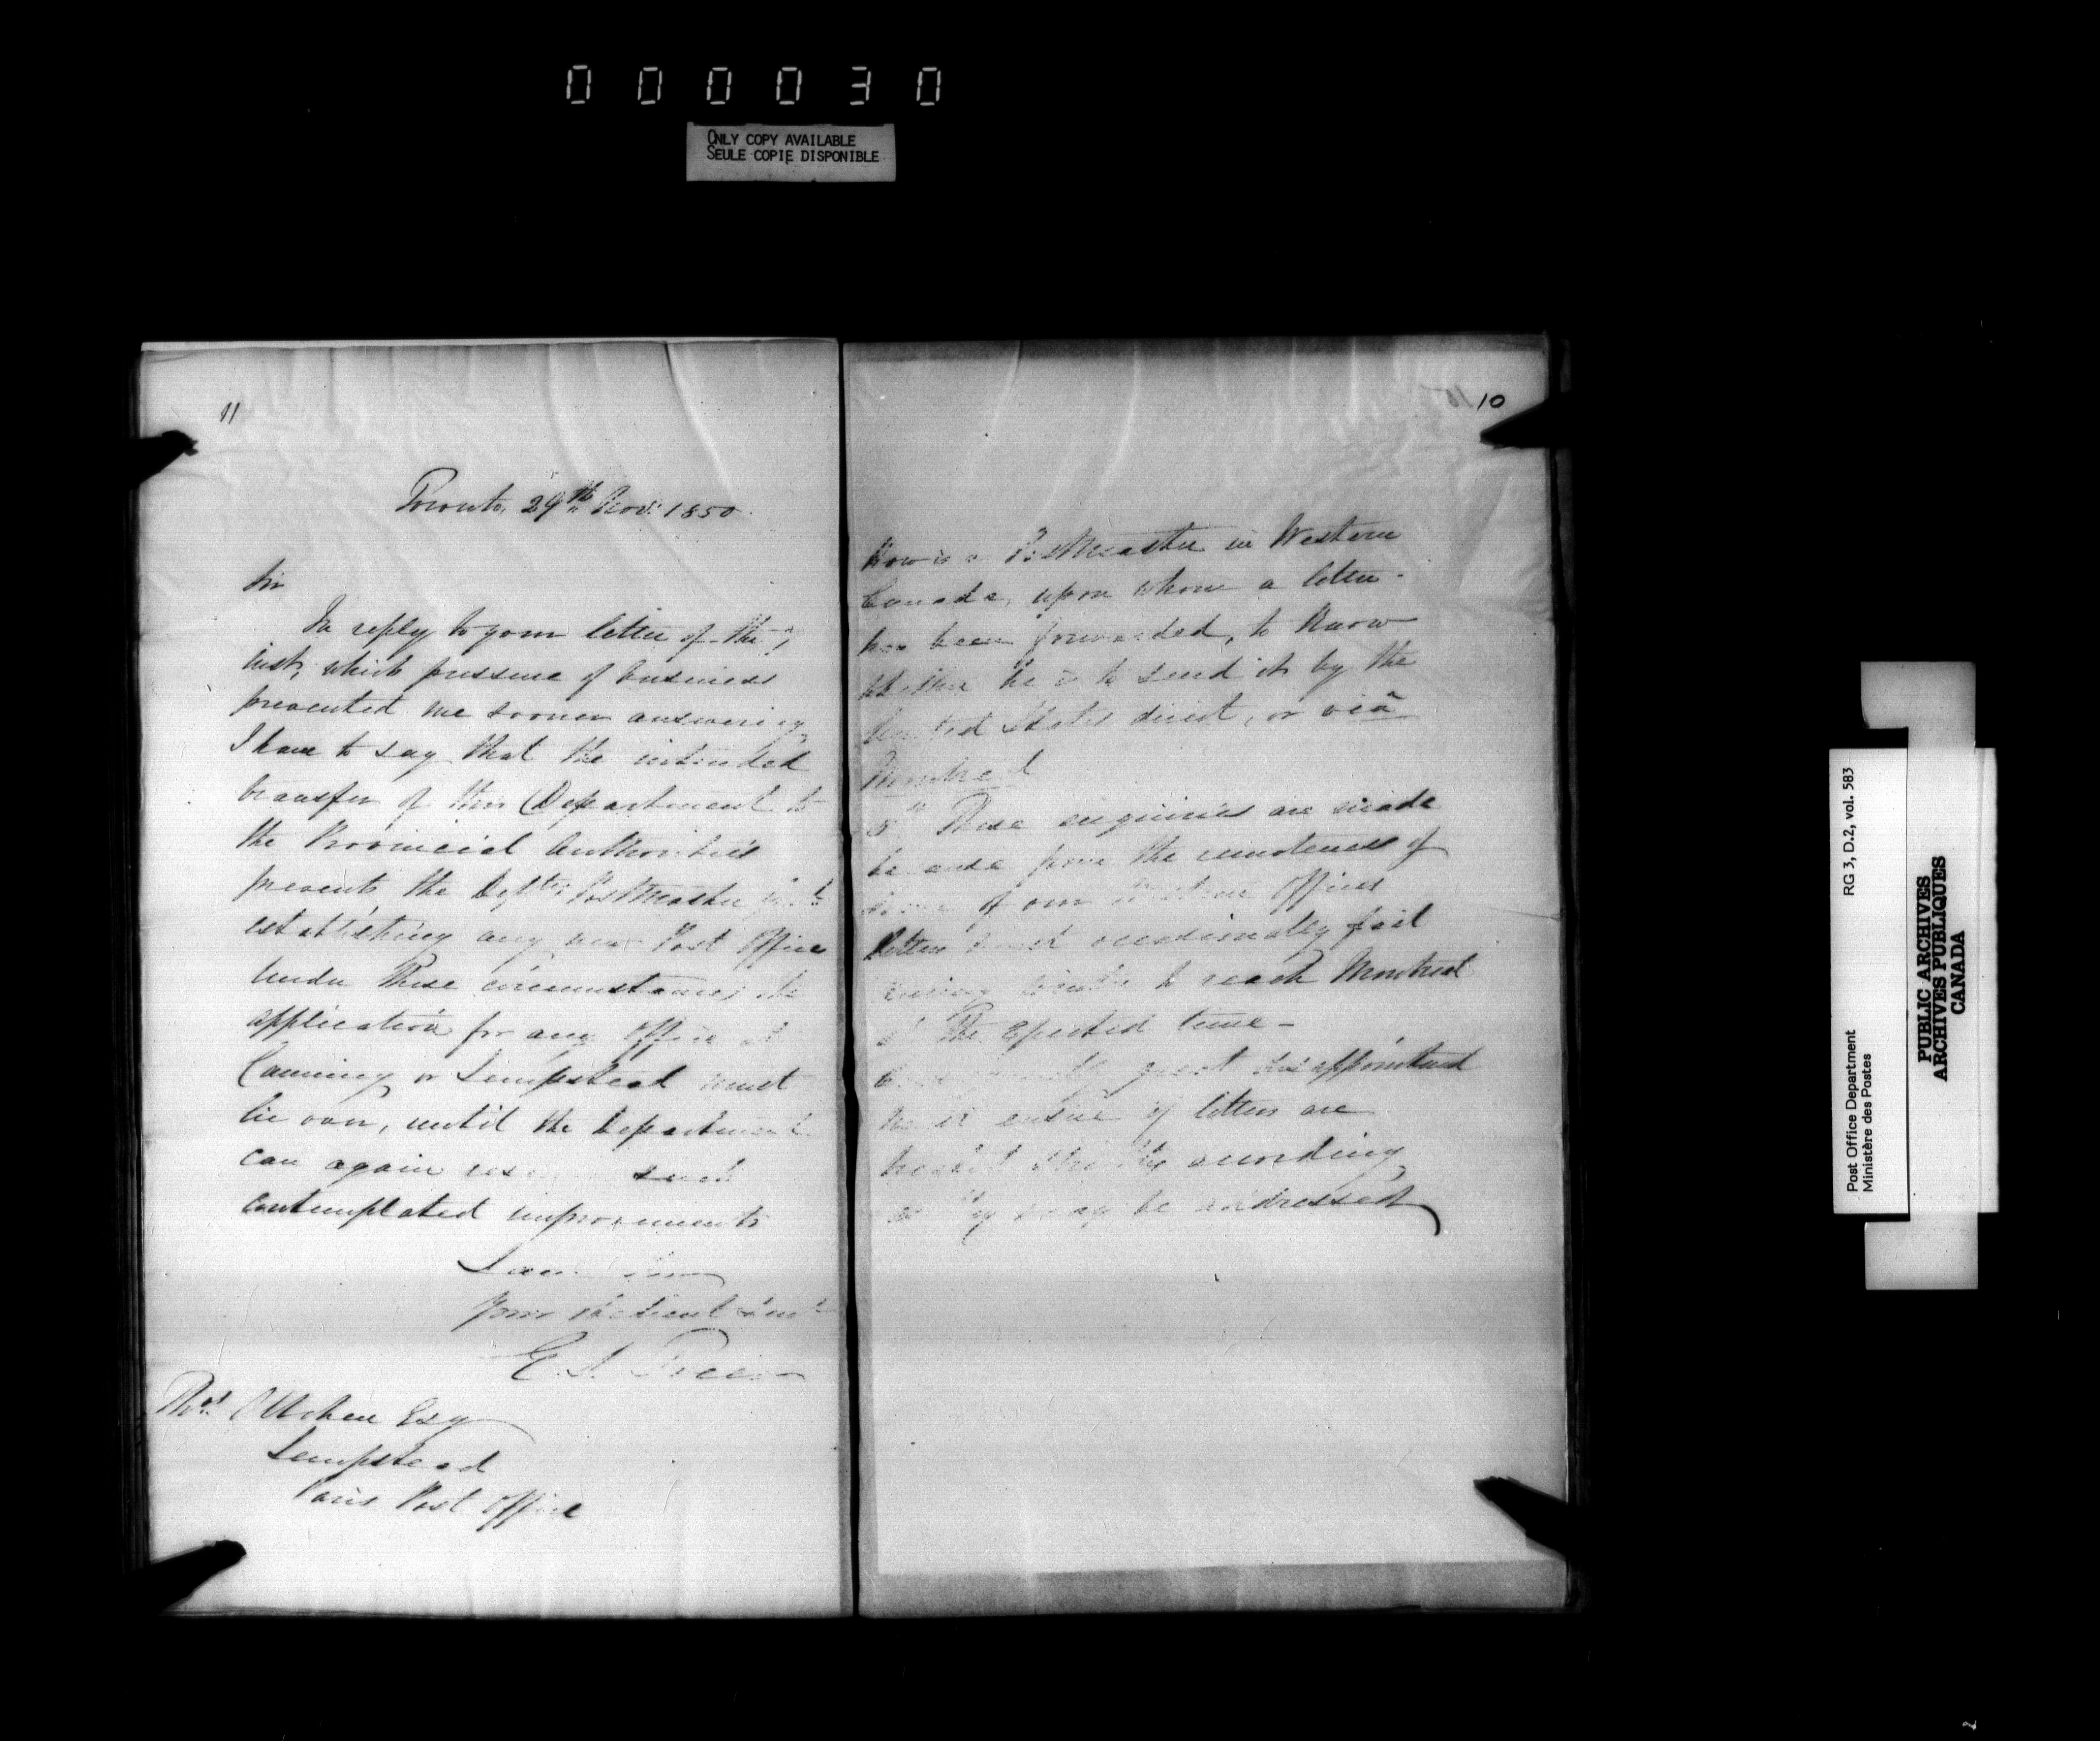 000030
ONLY COPY AVAILABLE
SEULE COPIE DISPONIBLE
11
Toronto, 29th Nov. 1850
Sir
In reply to your letter of the
inst, which pressure of business
prevented me sooner answering
I have to say that the intended
transfer of this Department to
the Provincial Authorities
prevents the Postmaster
establishing any new Post Office
Under these circumstances the
application for any Office at
Canning or Sempstead must
lie over, until the Department
can again such
contemplated improvements
Your obedient
Esq
Sempstead
Paris Post Office
10
How is a Postmaster in Western
Canada, upon whom a letter
has been forwarded, to know
whether he is to send it by the
United States direct, or viâ
Montreal
5th These enquiries are made
because from the remoteness of
some of our Offices
letters must occasionally fail
to reach Montreal
the time -
great
ensue if letters are
according
as they may be addressed
Post Office Department
Ministère des Postes
RG 3, D.2, vol. 583
PUBLIC ARCHIVES
ARCHIVES PUBLIQUES
CANADA